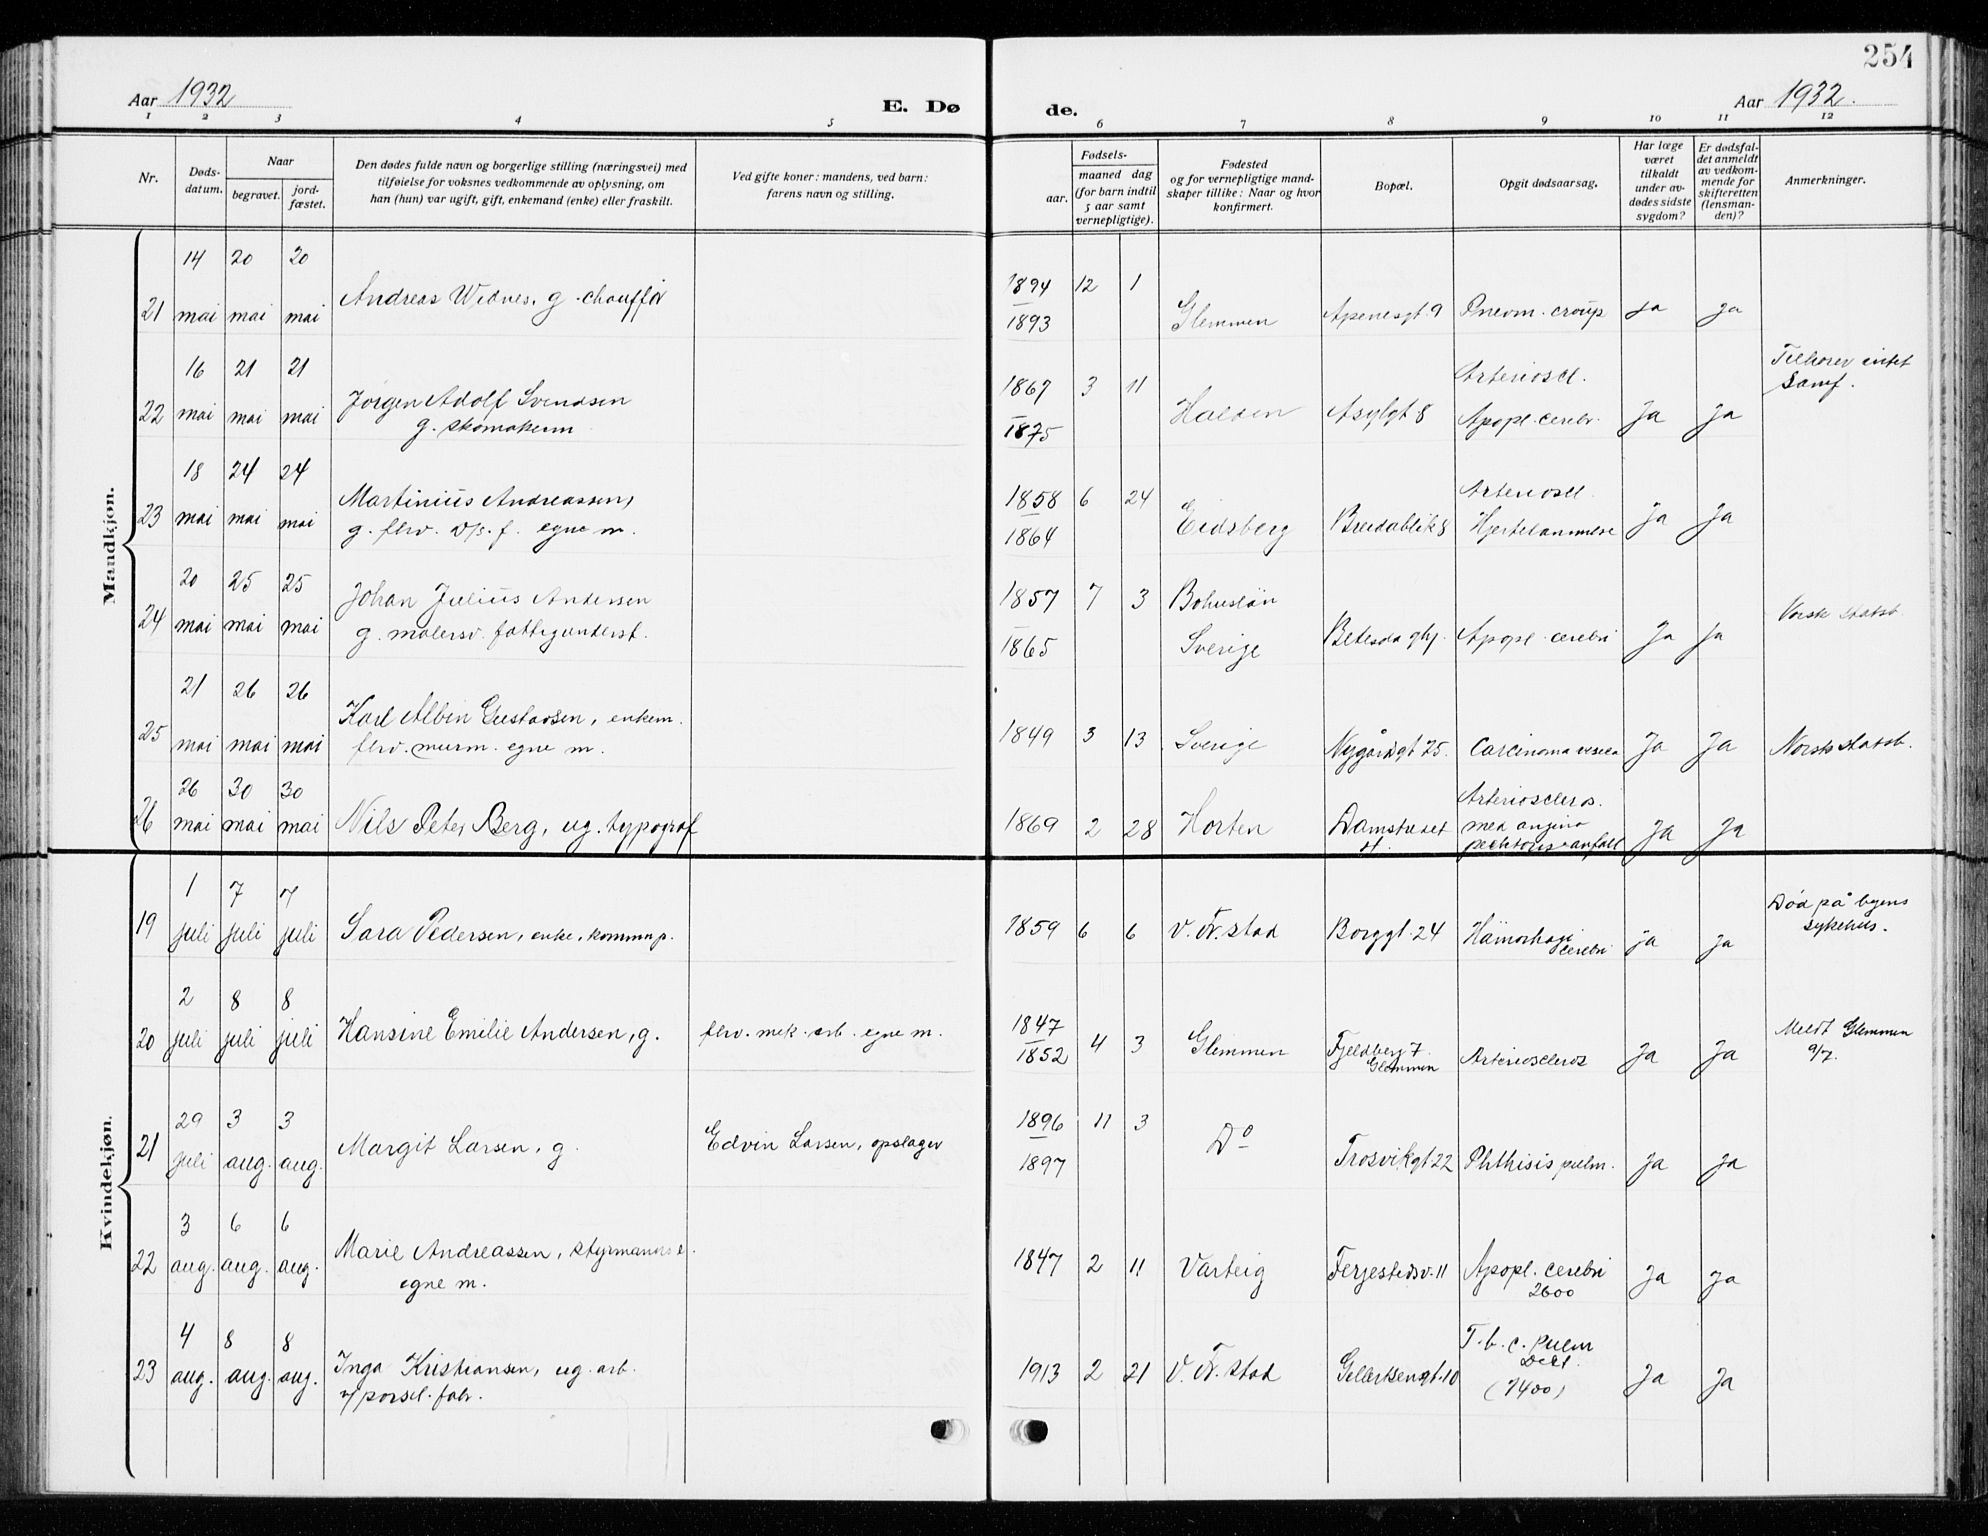 254
Aar 1932
E. Dø
de.
Aar 1932.
1 2 3 4 5 6 7 8 9 10 11 12
Nr.
Døds-
datum.
Naar
begravet.
jord-
fæstet.
Den dødes fulde navn og borgerlige stilling (næringsvei) med
tilføielse for voksnes vedkommende av oplysning, om
han (hun) var ugift, gift, enkemand (enke) eller fraskilt.
Ved gifte koner: mandens, ved barn:
farens navn og stilling.
Fødsels-
aar.
maaned dag
(for barn indtil
5 aar samt
vernepligtige).
Fødested
og for vernepligtige mand-
skaper tillike: Naar og hvor
konfirmert.
Bopæl.
Opgit dødsaarsag.
Har læge
været
tilkaldt
under av-
dødes sidste
sygdom?
Er dødsfal-
det anmeldt
av vedkom-
mende for
skifteretten
(lensman-
den)?
Anmerkninger.
Mandkjøn.
14 20 20
1894 12 1
Andreas Widnes, g. chauffør
21 mai mai mai
1893 Glemmen Apenesgt. 9 Pnevm. croup Ja Ja
16 21 21
1867 3 11 Arteriosel.
Tilhører intet
Samf.
Jørgen Adolf Svendsen
22 mai mai mai
g. skomakerm
1875 Halden Asylgt 8 Apopl. cerebr. Ja Ja
18 24 24
Martinius Andreassen,
1858 6 24 Arteriosel
23 mai mai mai
g. fhv. f. egne m.
1864 Eidsberg Breidablik 8 Ja Ja
20 25 25
Johan Julius Andersen
1857 7 3 Bohuslän
24 mai mai mai
g. malersv. fattigunderst.
1865 Sverige Betesda Apopl. cerebri Ja Ja
Norsk statsb.
21 26 26
Karl Albin Gustavsen, enkem.
25 mai mai mai
fhv. murm. egne m.
1849 3 13 Sverige Nygårdsgt 25. Carcinoma vesica Ja Ja Norsk statsb.
26 30 30
Arterioscleros.
26 mai mai mai
Nils Peter Berg, ug. typograf
1869 2 28 Horten Damstredet
4.
med angina
pectoris anfall
Ja Ja
Kvindekjøn.
1 7 7
19 juli juli juli
Sara Pedersen, enke, kommunp.
1859 6 6 V. Fr.stad Borggt. 24 Hämorhagi
cerebri
ja ja
Død på byens
sykehus.
2 8 8
20 juli juli juli
Hansine Emilie Andersen, g.
fhv. mek. arb. egne m.
1847
1852
4 3 Glemmen Fjeldberg 7
Glemmen
Arterioscleros Ja Ja
Meldt Glemmen
9/7.
29 3 3
21 juli aug. aug.
Margit Larsen, g.
Edvin Larsen, opslager
1896 11 3
1897
Do
Trosvikgt. 22 Phthisis pulm. Ja Ja
3 6 6
22 aug. aug. aug.
Marie Andreassen, styrmanns e.
egne m.
1847 2 11 Varteig Ferjestedsv. 11 Apopl. cerebri
2600
Ja Ja
4 8 8
23 aug. aug. aug.
Inga Kristiansen, ug. arb.
v/ porsel. fabr.
1913 2 21 V. Fr. stad Gellertsengt. 10
T. b. c. pulm
(7400)
Ja Ja